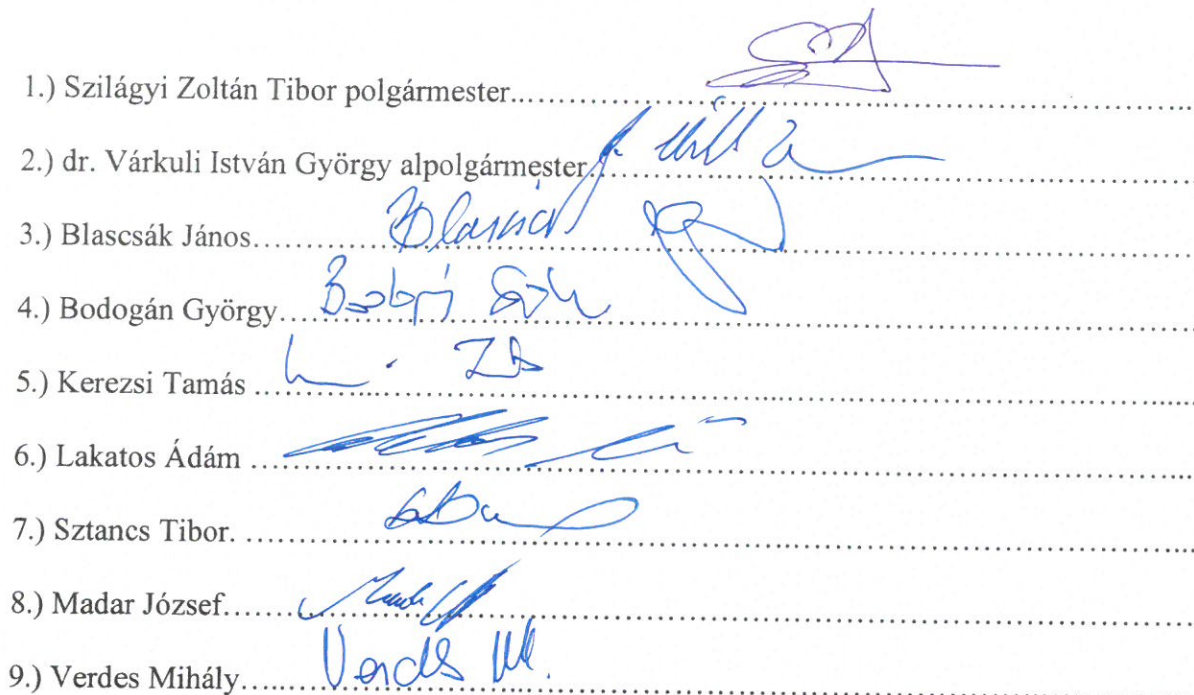 1.) Szilágyi Zoltán Tibor polgármester
2.) dr. Várkuli István György alpolgármester
3.) Blascsák János
4.) Bodogán György
5.) Kerezsi Tamás
6.) Lakatos Ádám
7.) Sztancs Tibor.
8.) Madar József
9.) Verdes Mihály Verdes M.